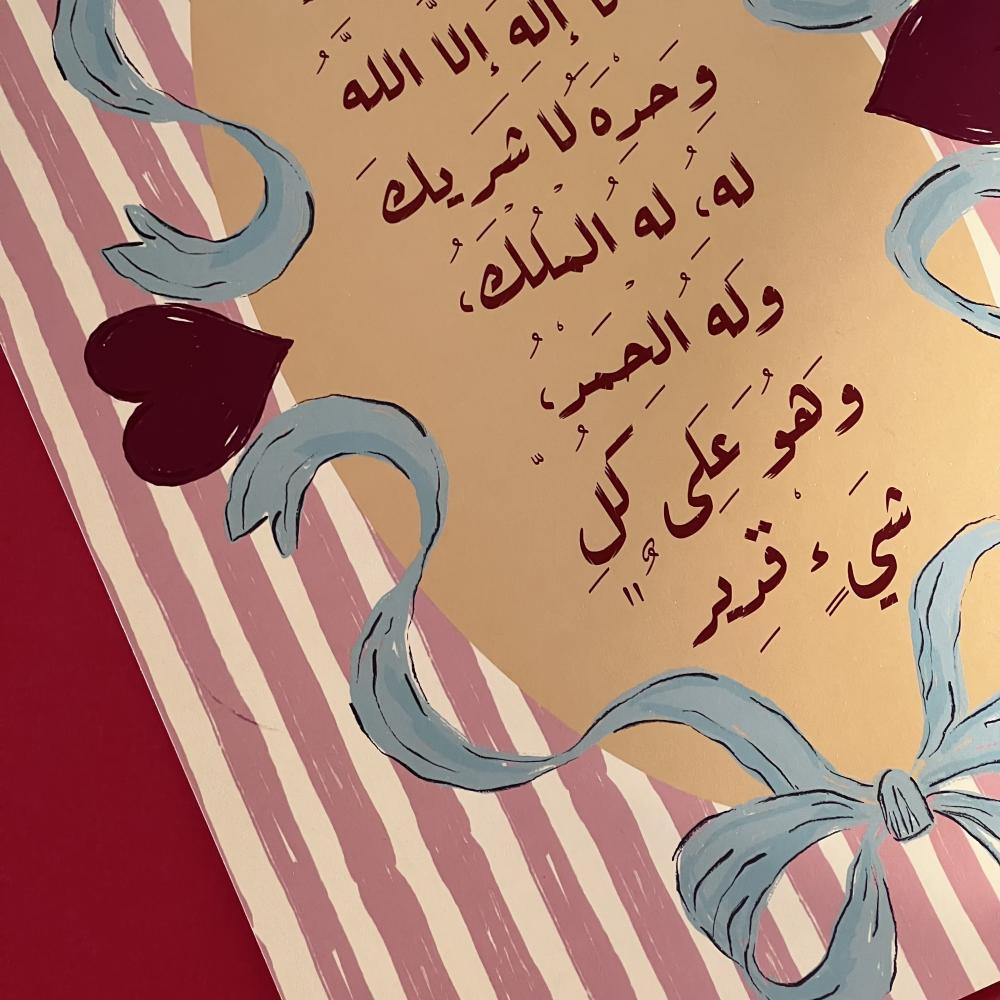 لا إِلَهَ إلا اللهُ
وَحْدَهُ لَا شَرِيكَ
لَهُ، لَهُ الْمُلْكُ،
وَلَهُ الْحَمْدُ،
وَهُوَ عَلَى كُلِّ
شَيْءٍ قَدِيرٌ